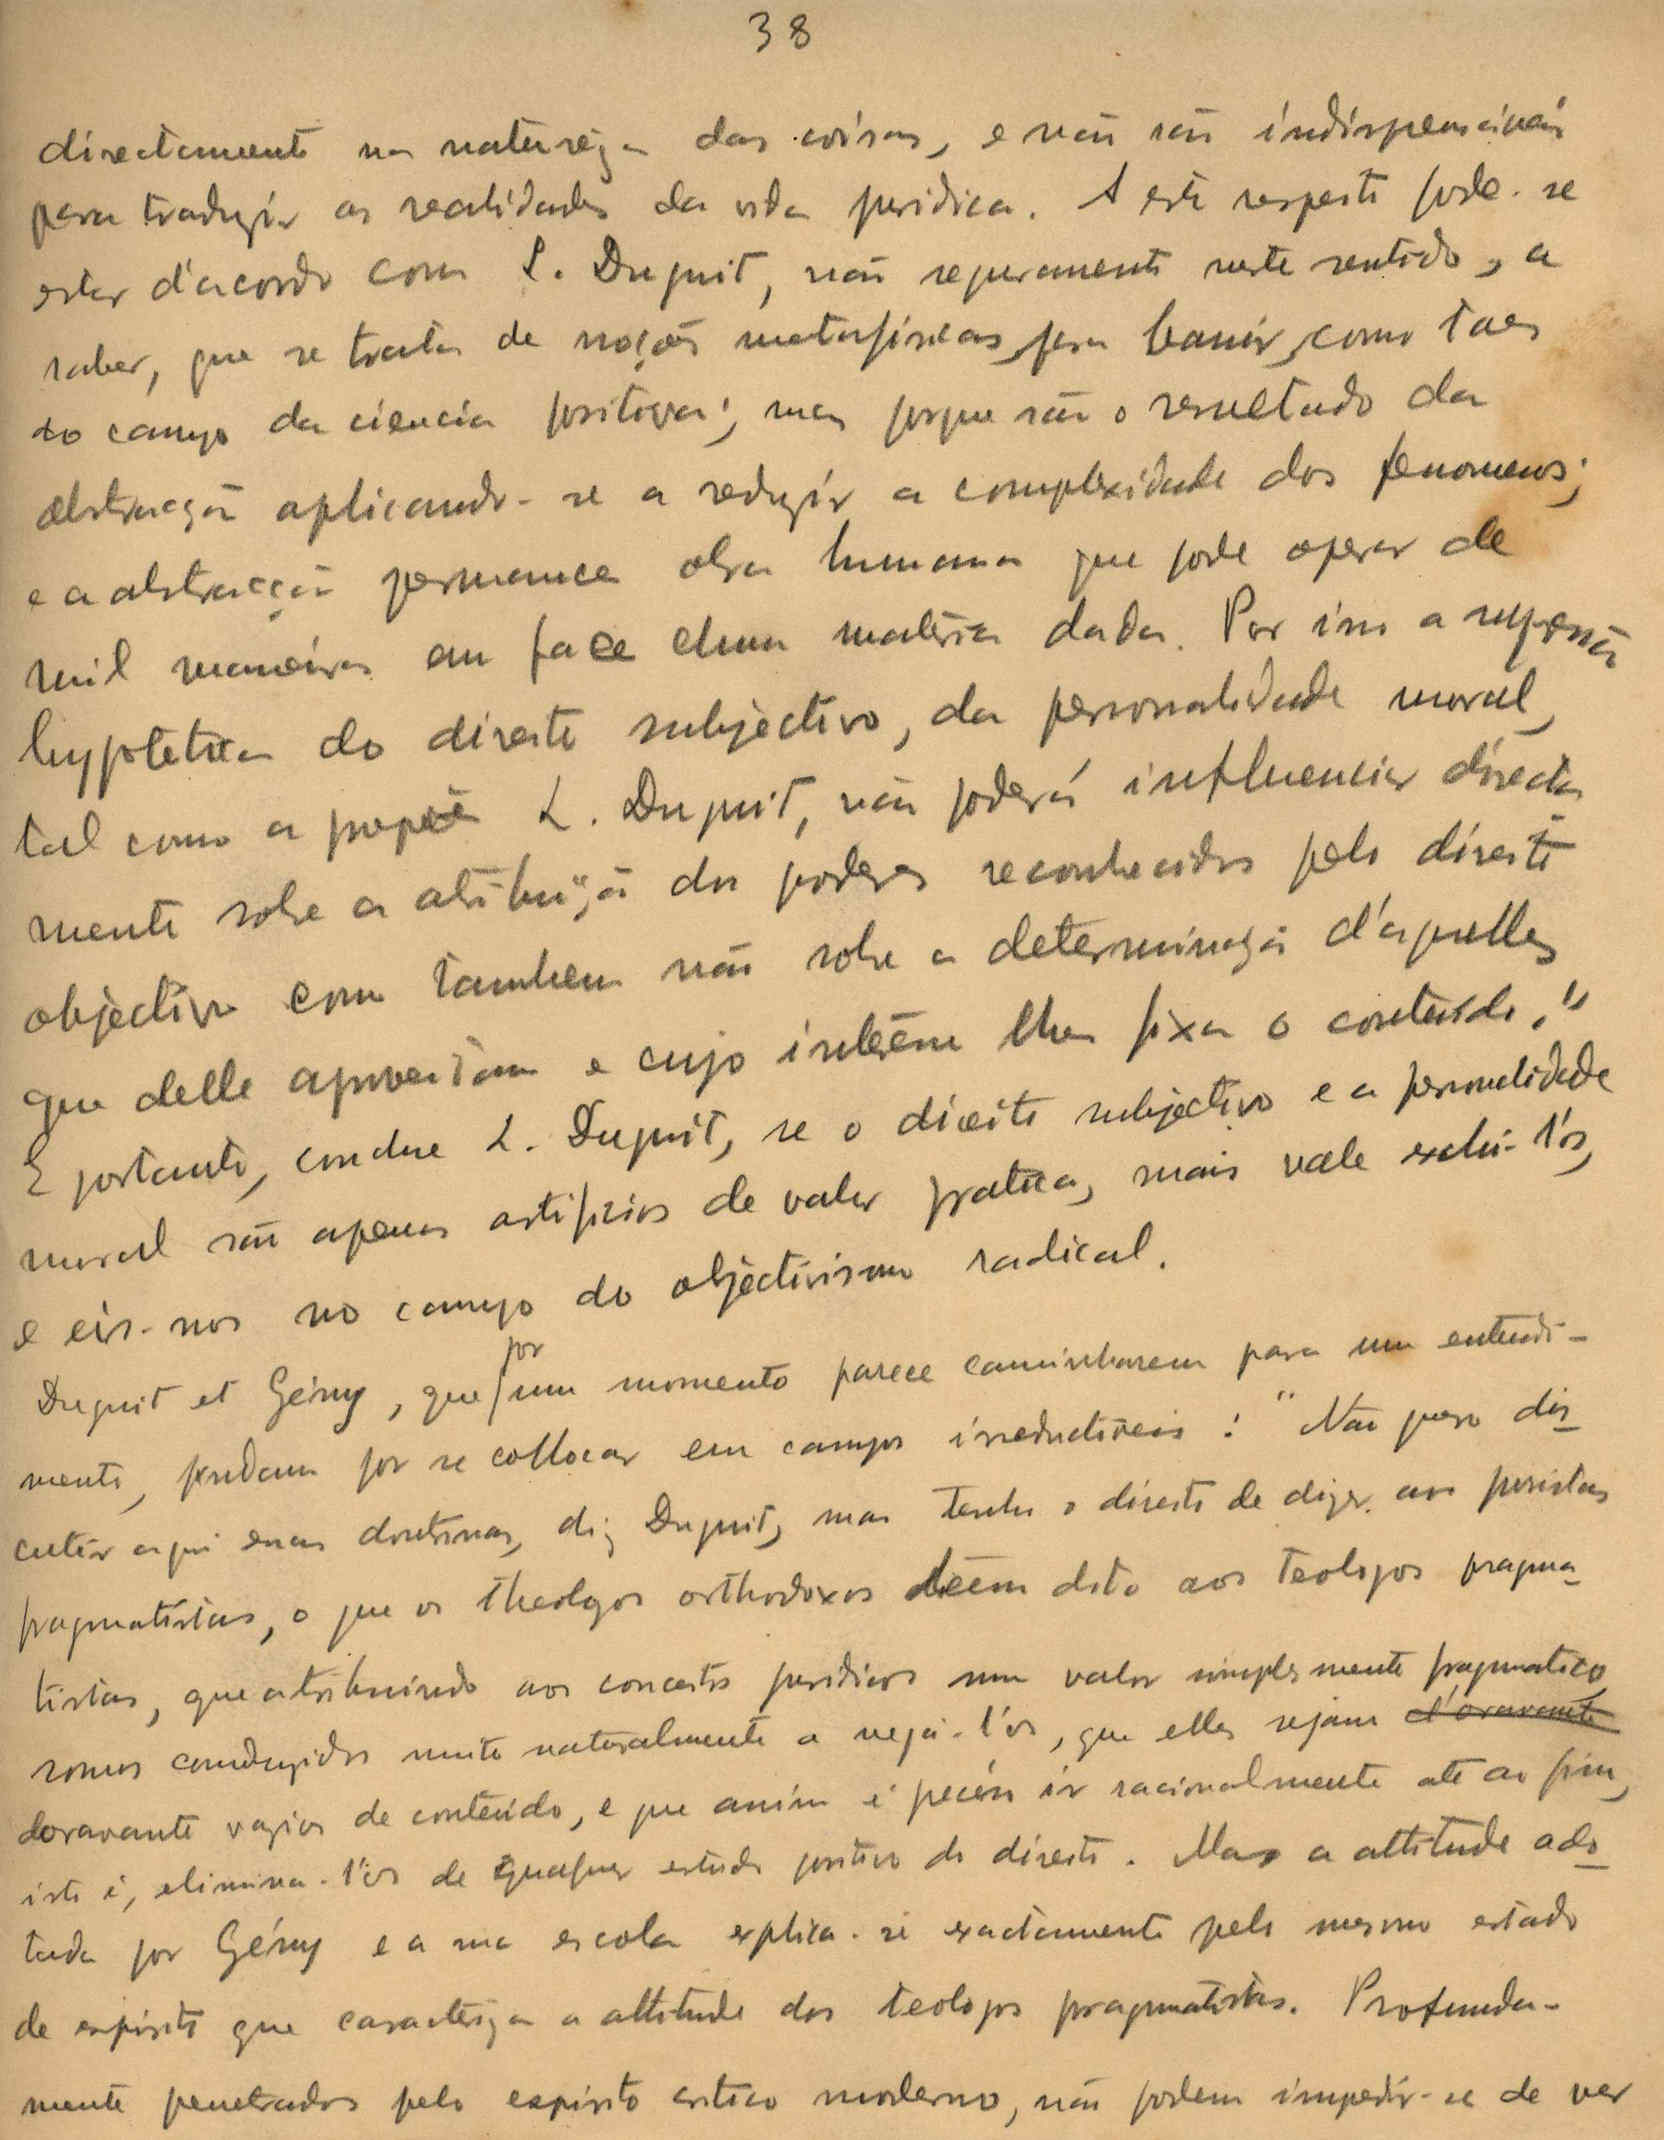 38
directamente na natureza das coisas, e não são indispensaveis
para traduzir as realidades da vida juridica. A este respeito pode-se
estar d'acordo com L. Duguit, não seguramente neste sentido, a
saber, que se trata de noções metafisicas, para banir, como taes
do campo da ciencia positiva; mas porque são o resultado da
abstracção aplicando-se a reduzir a complexidade dos fenomenos;
e a abstracção permanece obra humana que pode operar de
mil maneiras em face duma materia dada. Por isso a supressão
hypotetica do direito subjectivo, da personalidade moral,
tal como a propõe L. Duguit, não poderá influenciar directa
mente sobre a atribuição dos poderes reconhecidos pelo direito
objectivo como tambem não sobre a determinação d'aquelles
que delle aproveitam e cujo interesse lhes fixa o conteúdo."
E portanto, conclue L. Duguit, se o direito subjectivo e a personalidade
moral são apenas artificios de valor pratica, mais vale exclui-l'os,
e eis-nos no campo do objectivismo radical.
Duguit et Gény, que por um momento parece caminharem para um entendi-
mento, findam por se collocar em campos irreductiveis: "Não posso dis-
cutir aqui essas doutrinas, diz Duguit, mas tenho o direito de dizer aos juristas
pragmatistas, o que os theologos orthodoxos teem dito aos teologos pragma-
tistas, que atribuindo aos conceitos juridicos um valor simplesmente pragmatico,
somos conduzidos muito naturalmente a nega-l'os, que elles sejam d'oravante
doravante vazios de conteúdo, e que assim é preciso ir racionalmente ate ao fim,
isto é, elimina-l'os de qualquer estudo positivo do direito. Mas a attitude ado-
tada por Gény e a sua escola explica-se exactamente pelo mesmo estado
de espirito que caracteriza a attitude dos teologos pragmatistas. Profunda-
mente penetrados pelo espirito critico moderno, não podem impedir-se de ver